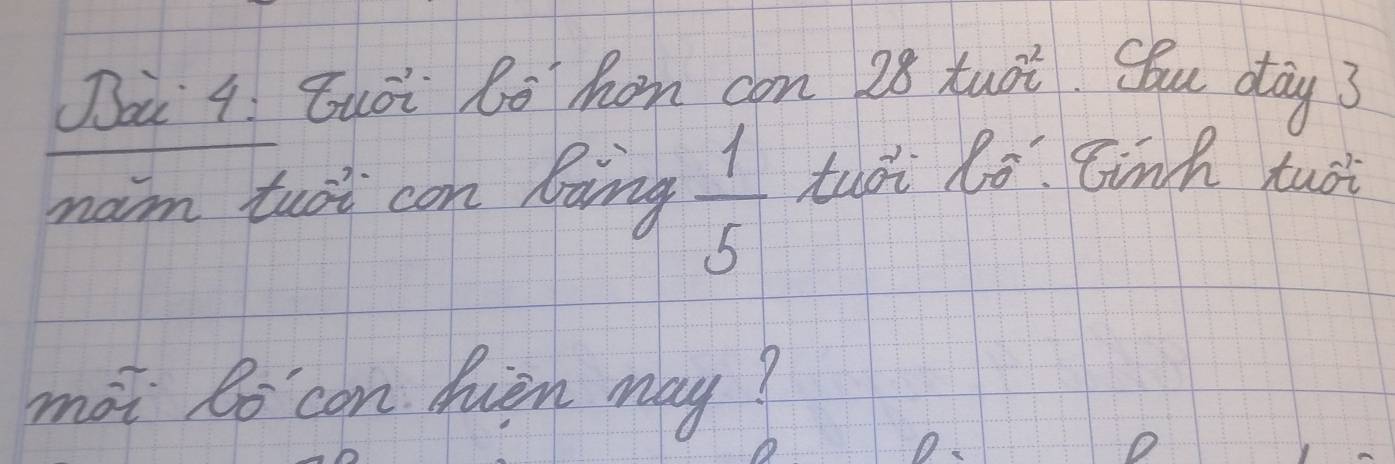 Bài 4: Tuổi bố hơn con 28 tuổi. Sau đây 3
năm tuổi con bằng 1/5 tuổi bố. Tính tuổi
mỗi bố con hiện nay?